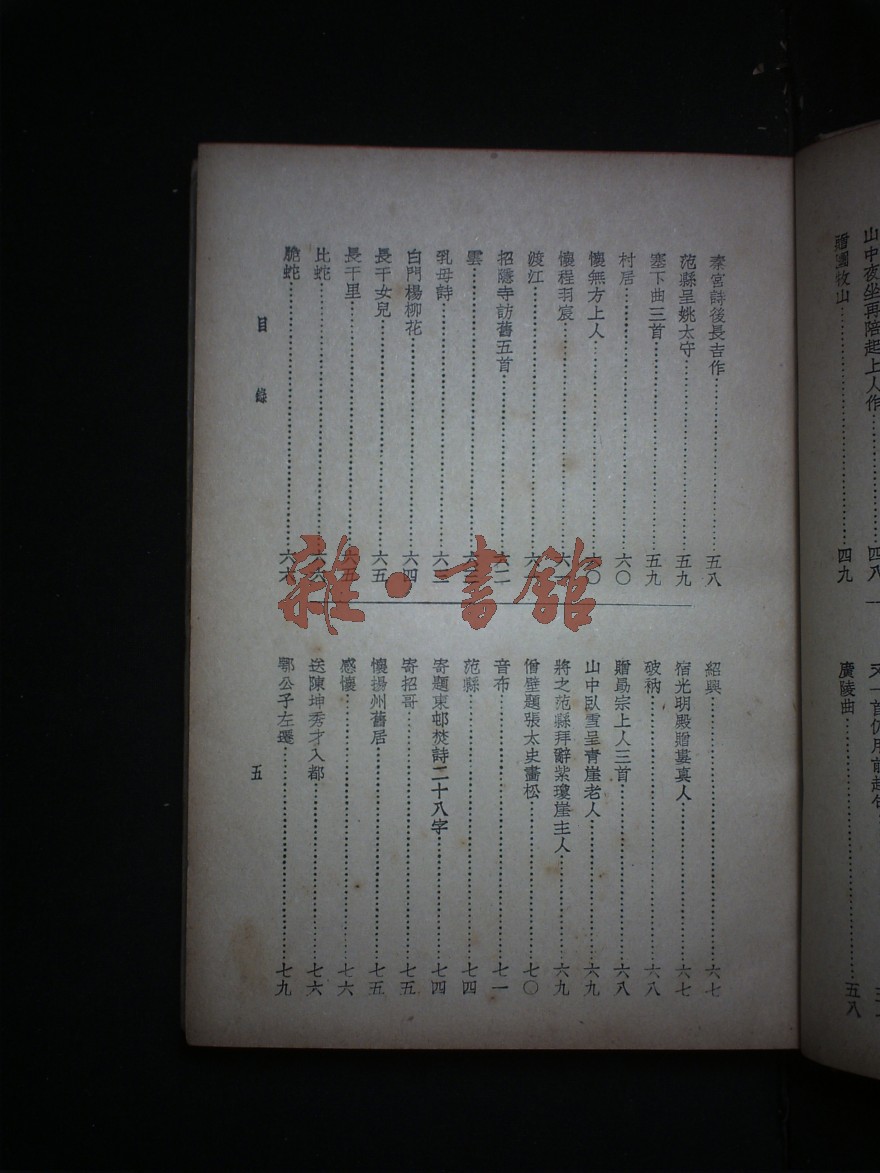 山中夜坐再陪起上人作……四八
贈圖牧山……四九
廣陵曲……五八
秦宮詩後長吉作……五八
范縣呈姚太守……五九
塞下曲三首……五九
村居……六〇
懷無方上人……六〇
懷程羽宸……六
渡江……六
招隱寺訪舊五首……六二
雲……六三
乳母詩……六三
白門楊柳花……六四
長干女兒……六五
長干里……六五
比蛇……六六
脆蛇……六六
紹興……六七
宿光明殿贈婁真人……六七
破衲……六八
贈勗宗上人三首……六八
山中臥雪呈青崖老人……六九
將之范縣拜辭紫瓊崖主人……六九
僧壁題張太史畫松……七〇
音布……七一
范縣……七四
寄題東邨焚詩二十八字……七四
寄招哥……七五
懷揚州舊居……七五
感懷……七六
送陳坤秀才入都……七六
鄂公子左遷……七九
目錄
五
雜·書館